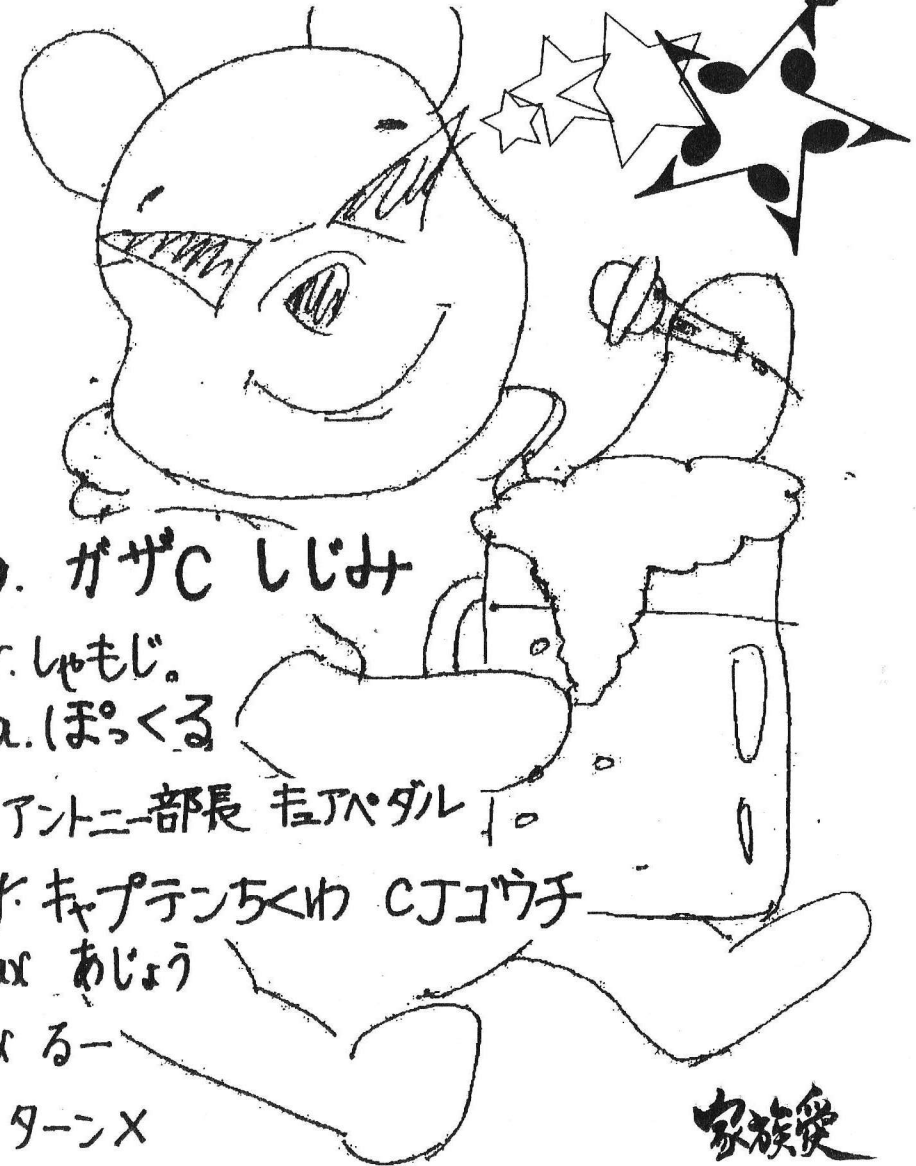 . ガザC しじみ
. しゃもじ。
a. ぽっくる
アントニー部長 キュアペダル
r. キャプテンちくわ CJゴウチ
ax あじょう
x るー
ターンX
家族愛